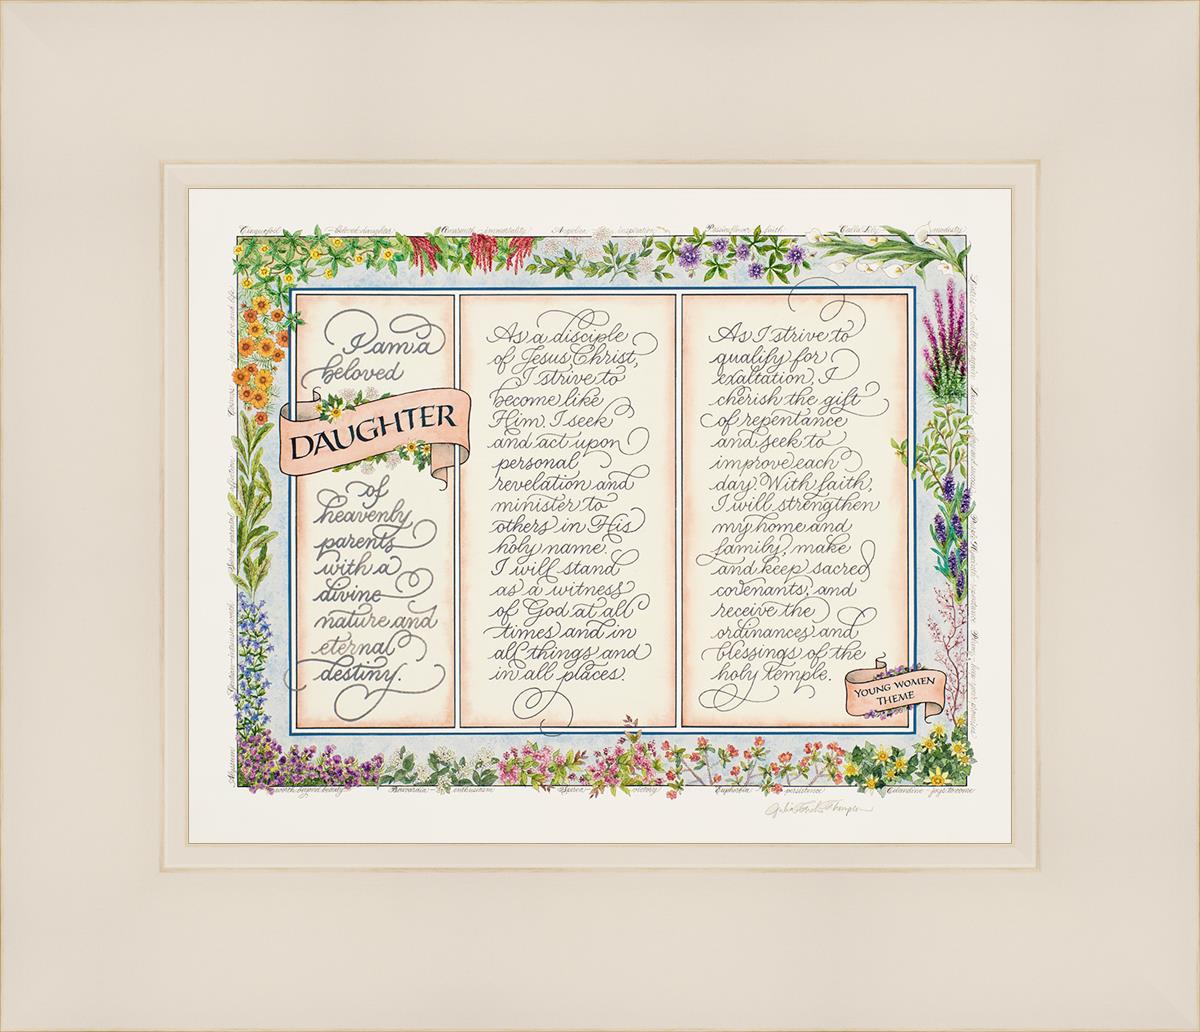 Cinquefoil - beloved daughter Amaranth - immortality Angelica - inspiration Passionflower - faith Calla Lily - modesty
I am a
beloved
DAUGHTER
of
heavenly
parents
with a
divine
nature and
eternal
destiny.
As a disciple
of Jesus Christ,
I strive to
become like
Him. I seek
and act upon
personal
revelation and
minister to
others in His
holy name.
I will stand
as a witness
of God at all
times and in
all things and
in all places.
As I strive to
qualify for
exaltation, I
cherish the gift
of repentance
and seek to
improve each
day. With faith,
I will strengthen
my home and
family, make
and keep sacred
covenants, and
receive the
ordinances and
blessings of the
holy temple.
YOUNG WOMEN
THEME
Alyssum - worth beyond beauty Bouvardia - enthusiasm victory Euphorbia - persistence Celandine - joys to come